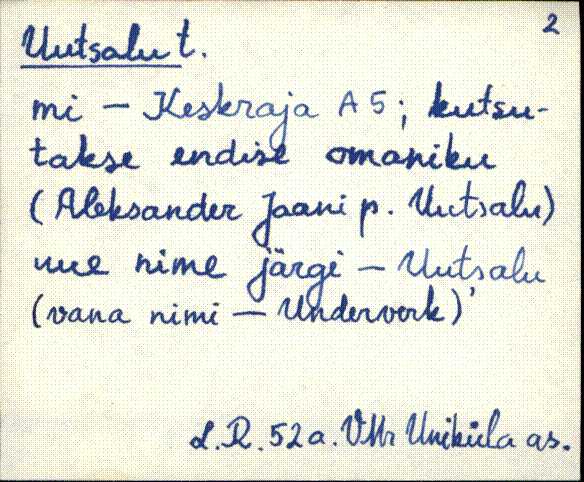 2
Uutsalu t.
mi - Keskraja A5; kutsu-
takse endise omaniku
(Aleksander Jaani p. Uutsalu)
uue nime järgi - Uutsalu
(vana nimi - Underverk)'
L.R. 52a. VMr Uniküla as.